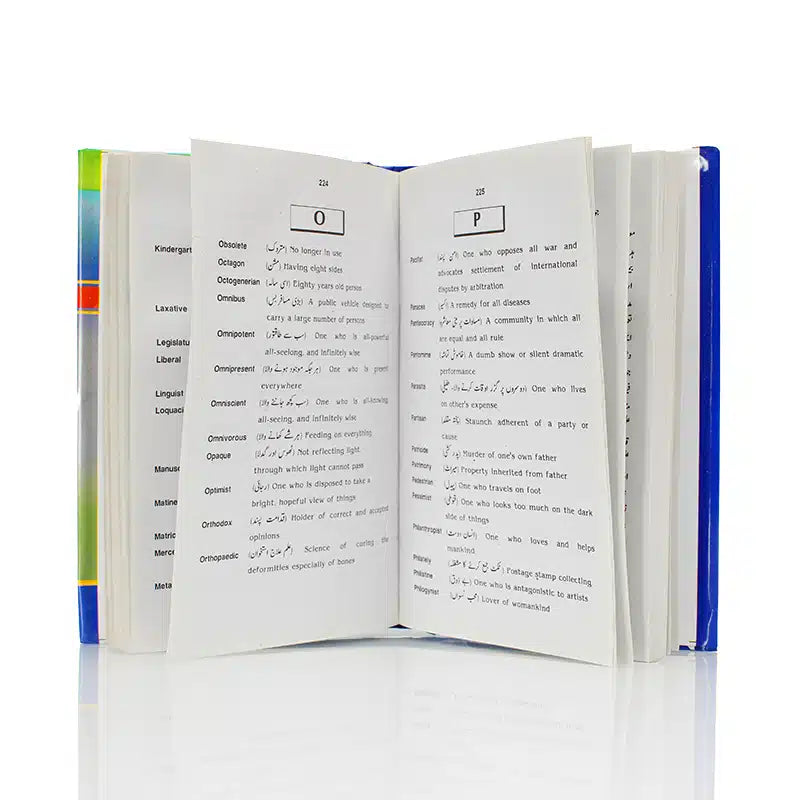 Kindergart
Laxative
Legislatu
Liberal
Linguist
Loquaci
Manusc
Matine
Matric
Merce
Meta
224
O
Obsolete (متروک) No longer in use
Octagon (مثمن) Having eight sides
Octogenerian (اسی سالہ) Eighty years old person
Omnibus (بڑی مسافر بس) A public vehicle designed to
carry a large number of persons
Omnipotent (سب سے طاقتور) One who is all-powerful
all-seelong, and infinitely wise
Omnipresent (ہر جگہ موجود ہونے والا) One who is present
everywhere
Omniscient (سب کچھ جاننے والا) One who is all-knowing,
all-seeing, and infinitely wise
Omnivorous (ہر شے کھانے والا) Feeding on everything
Opaque (ٹھوس اور گدلا) Not reflecting light
through which light cannot pass
Optimist (رجائی) One who is disposed to take a
bright, hopeful view of things
Orthodox (قدامت پسند) Holder of correct and accepted
opinions
Orthopaedic (علم علاج استخوان) Science of curing the
deformities especially of bones
225
P
Pacifist (امن پسند) One who opposes all war and
advocates settlement of international
disputes by arbitration
Panacea (اکسیر) A remedy for all diseases
Pantisocracy A community in which all
are equal and all rule
Pantomime (خاموش تماشہ) A dumb show or silent dramatic
performance
Parasite (دوسروں پر گزر اوقات کرنے والا، طفیلی) One who lives
on other's expense
Partisan Staunch adherent of a party or
cause
Patricide (پدر کشی) Murder of one's own father
Patrimony (میراث) Property inherited from father
Pedestrian (پیدل) One who travels on foot
Pessimist (قنوطی) One who looks too much on the dark
side of things
Philanthropist (انسان دوست) One who loves and helps
mankind
Philately (ٹکٹ جمع کرنے کا مشغلہ) Postage stamp collecting
Philistine (بے ذوق) One who is antagonistic to artists
Philogynist (محب نسواں) Lover of womankind